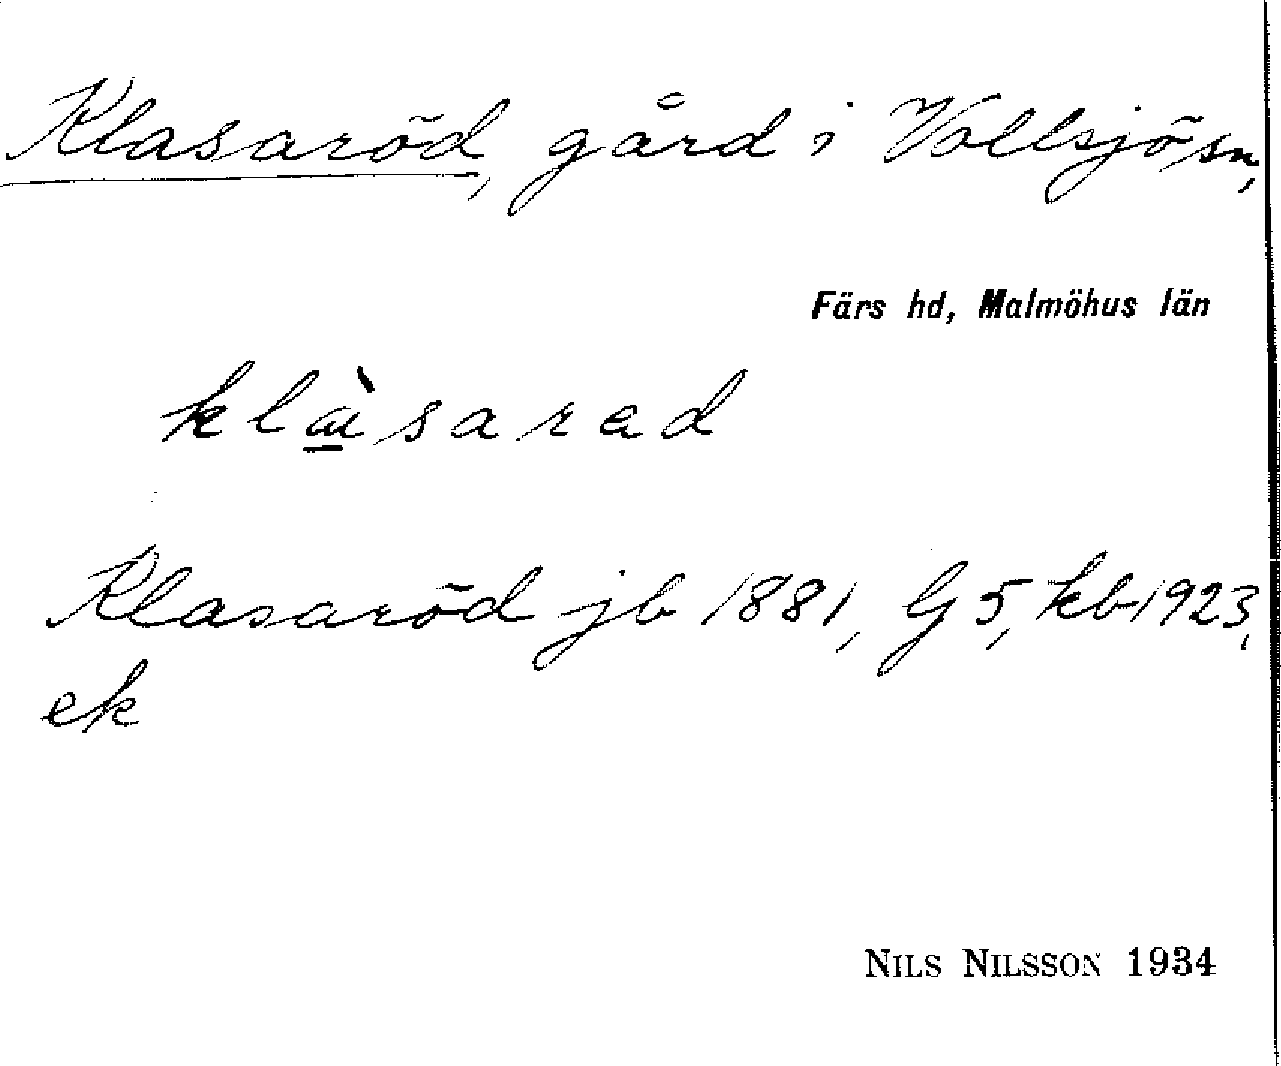 Klasaröd, gård i Vollsjö sn,
Färs hd, Malmöhus län
klàsarad
Klasaröd jb 1881, G 5, kb 1923,
ek
NILS NILSSON 1934